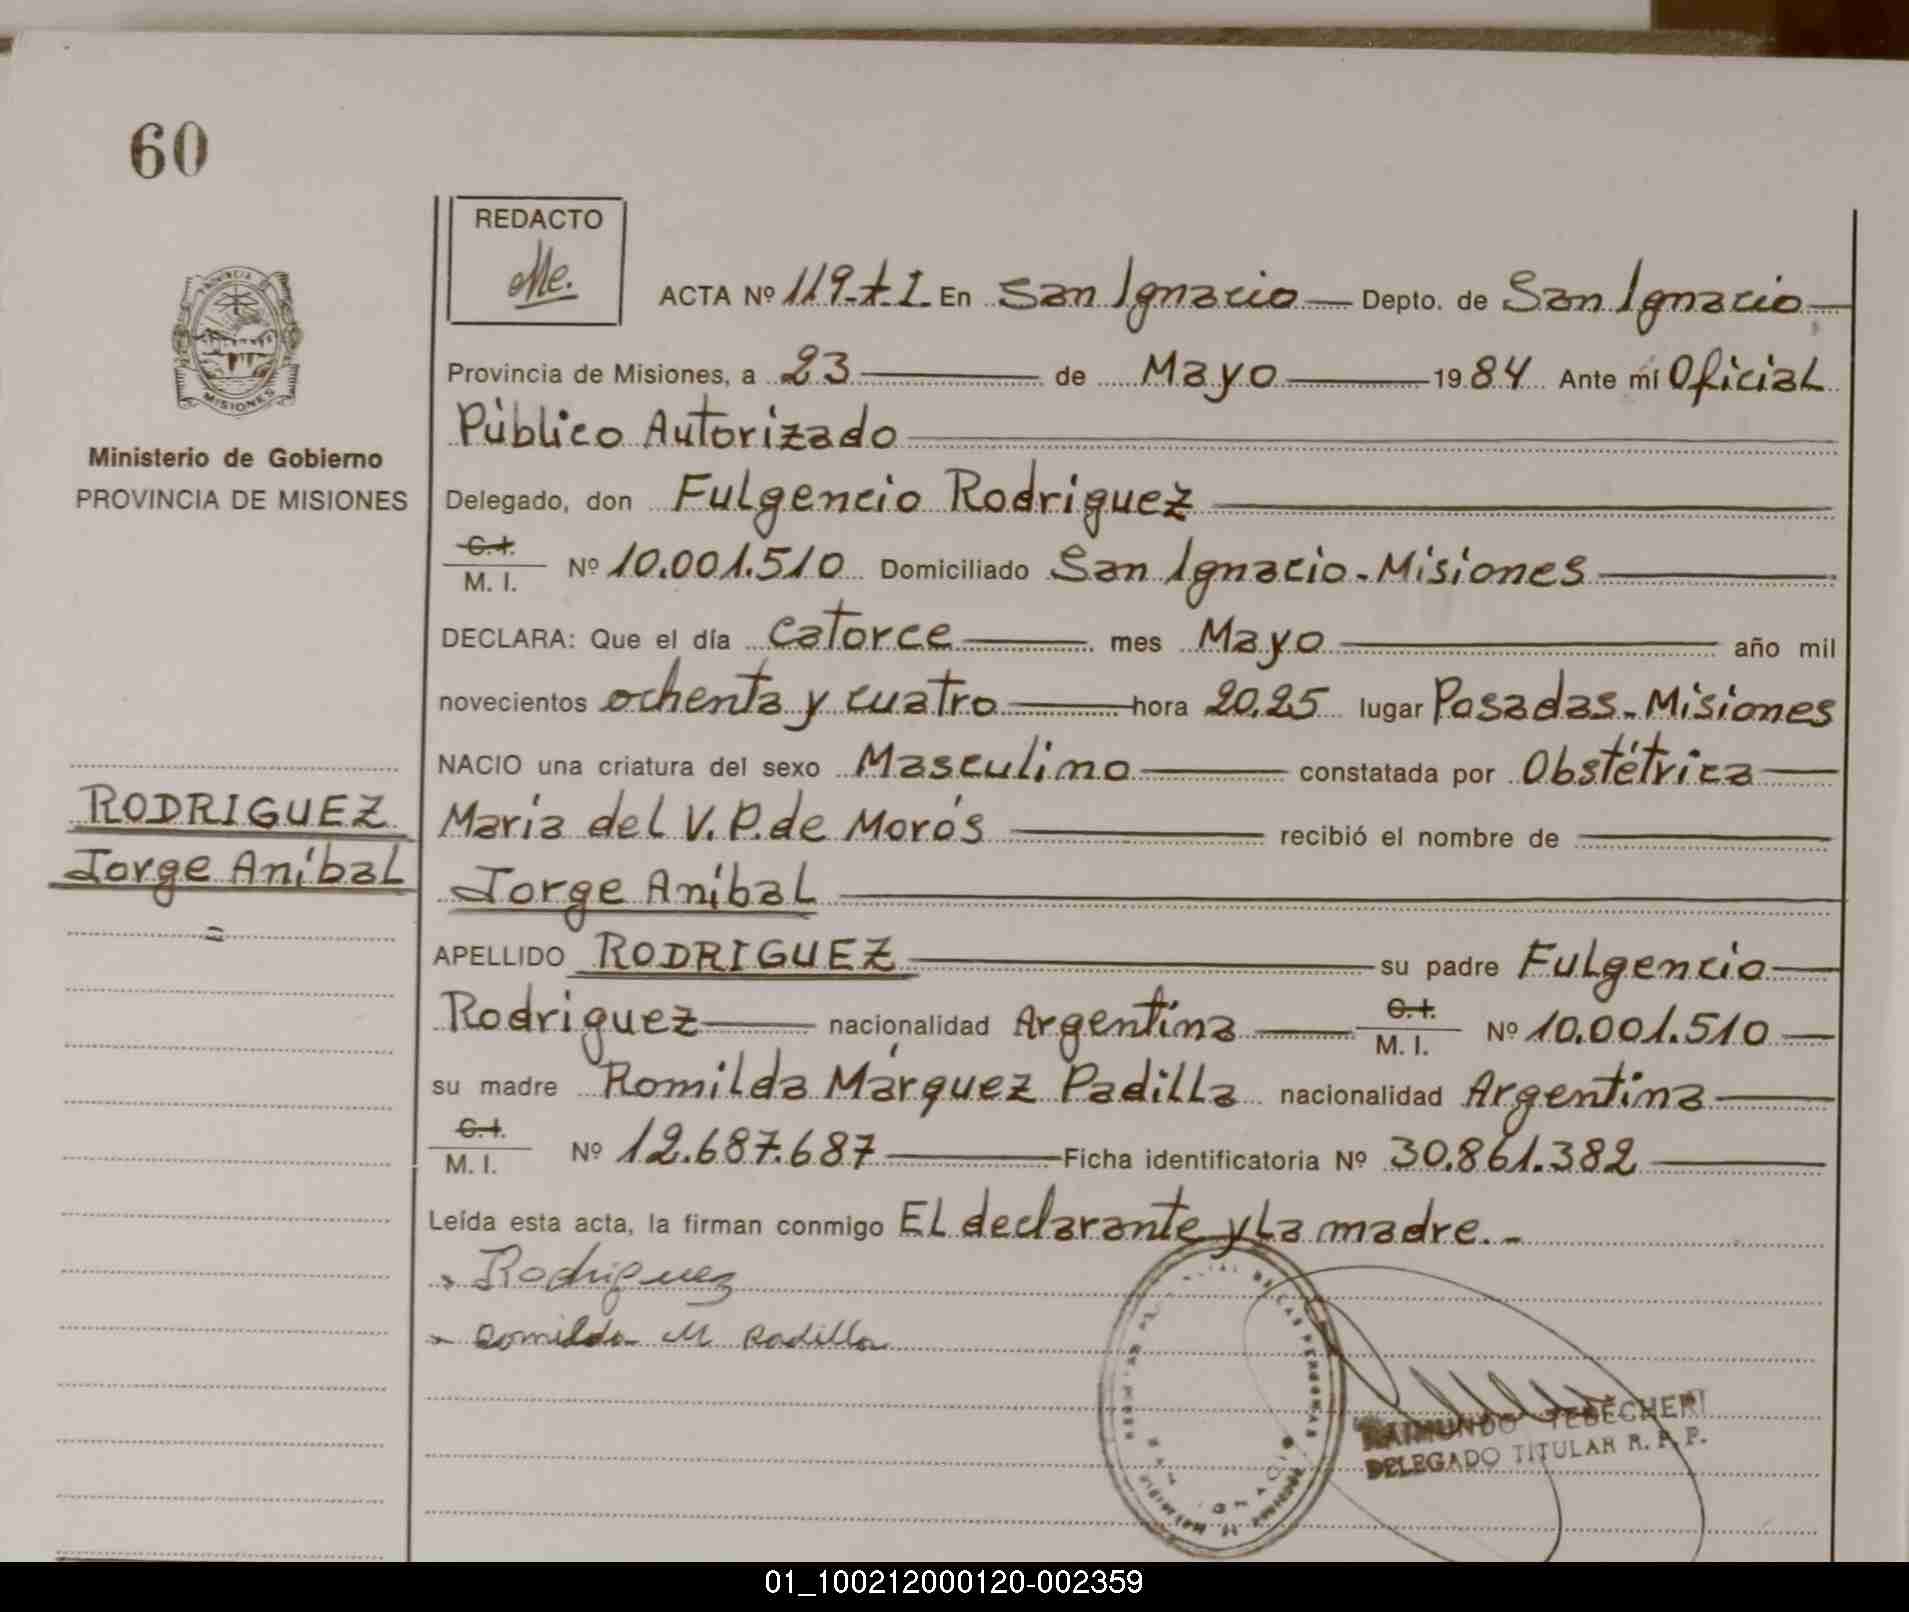 60
REDACTO
Me.
ACTA Nº 119-t I- En San Ignacio Depto. de San Ignacio
Provincia de Misiones, a 23 de Mayo 1984 Ante mí Oficial
Público Autorizado
PROVINCIA
MISIONES
Ministerio de Gobierno
PROVINCIA DE MISIONES
Delegado, don Fulgencio Rodriguez
C.I.
M. I. Nº 10.001.510 Domiciliado San Ignacio-Misiones
DECLARA: Que el día catorce mes Mayo año mil
novecientos ochenta y cuatro hora 20.25 lugar Posadas-Misiones
NACIO una criatura del sexo Masculino constatada por Obstétrica
RODRIGUEZ
Jorge Aníbal
=
María del V. P. de Morós recibió el nombre de
Jorge Aníbal
APELLIDO RODRIGUEZ su padre Fulgencio
Rodriguez nacionalidad Argentina C.I. M. I. Nº 10.001.510
su madre Romilda Márquez Padilla nacionalidad Argentina
C.I.
M. I. Nº 12.687.687 Ficha identificatoria Nº 30.861.382
Leída esta acta, la firman conmigo El declarante y La madre.-
Rodriguez
Romilda M Padilla
DE LAS PERSONAS
RAIMUNDO TEDECHERI
DELEGADO TITULAR R. P. P.
01_100212000120-002359